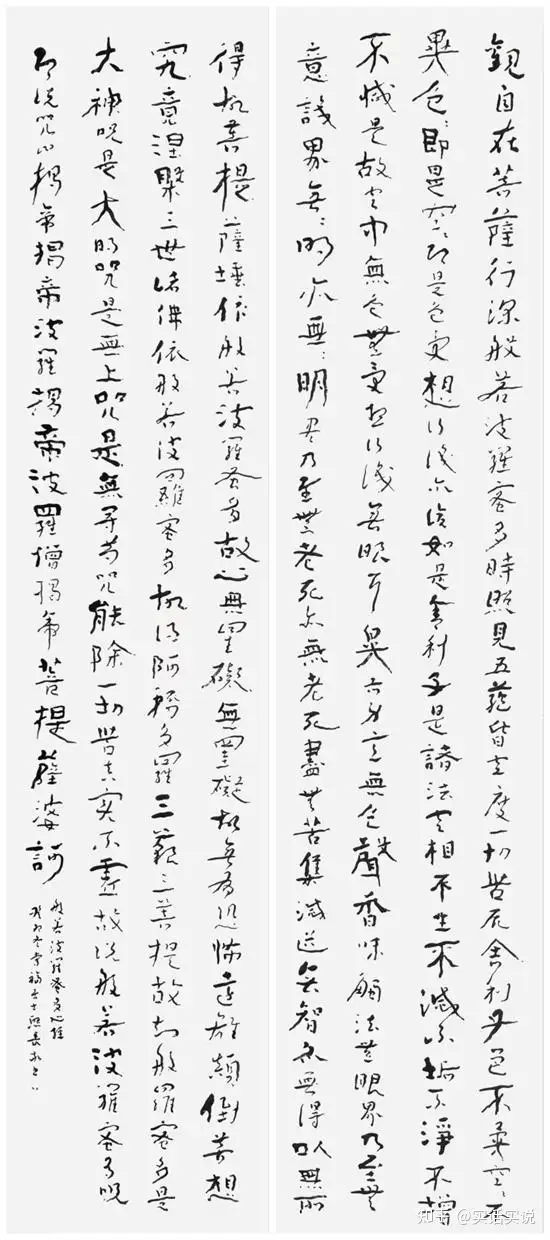 觀自在菩薩行深般若波羅蜜多時照見五蘊皆空度一切苦厄舍利子色不異空〻不
異色〻即是空〻即是色受想行識亦復如是舍利子是諸法空相不生不滅不垢不淨不增
不減是故空中無色無受想行識無眼耳鼻舌身意無色聲香味觸法無眼界乃至無
意識界無〻明亦無〻明盡乃至無老死亦無老死盡無苦集滅道無智亦無得以無所
得故菩提薩埵依般若波羅蜜多故心無罣礙無罣礙故無有恐怖遠離顛倒夢想
究竟涅槃三世諸佛依般若波羅蜜多故得阿耨多羅三藐三菩提故知般羅蜜多是
大神咒是大明咒是無上咒是無等等咒能除一切苦真實不虛故說般若波羅蜜多咒
即說咒曰揭帝揭帝波羅揭帝波羅僧揭帝菩提薩婆訶
般若波羅蜜多心經
知乎 @实话实说